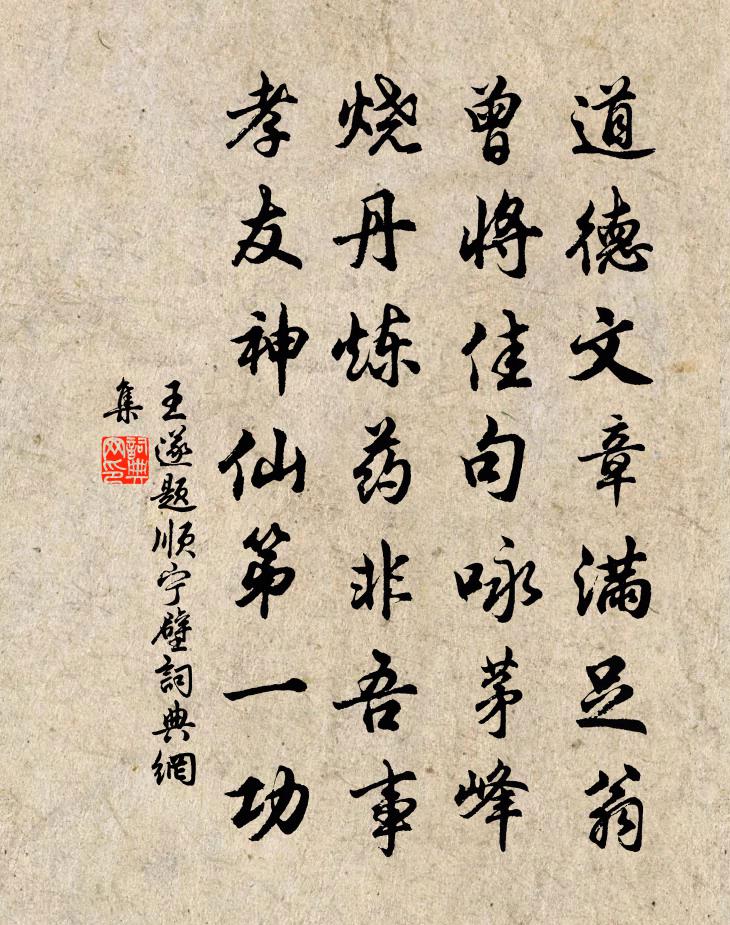 道德文章满足翁
曾将佳句咏茅峰
烧丹炼药非吾事
孝友神仙第一功
王遂题顺宁壁詞典網
集
詞典
网印